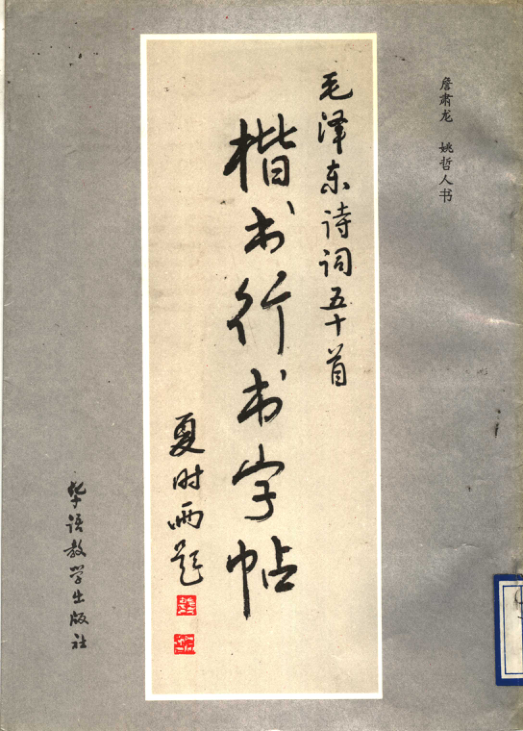 詹肃龙 姚哲人书
毛泽东诗词五十首
楷书行书字帖
夏时雨题
华语教学出版社